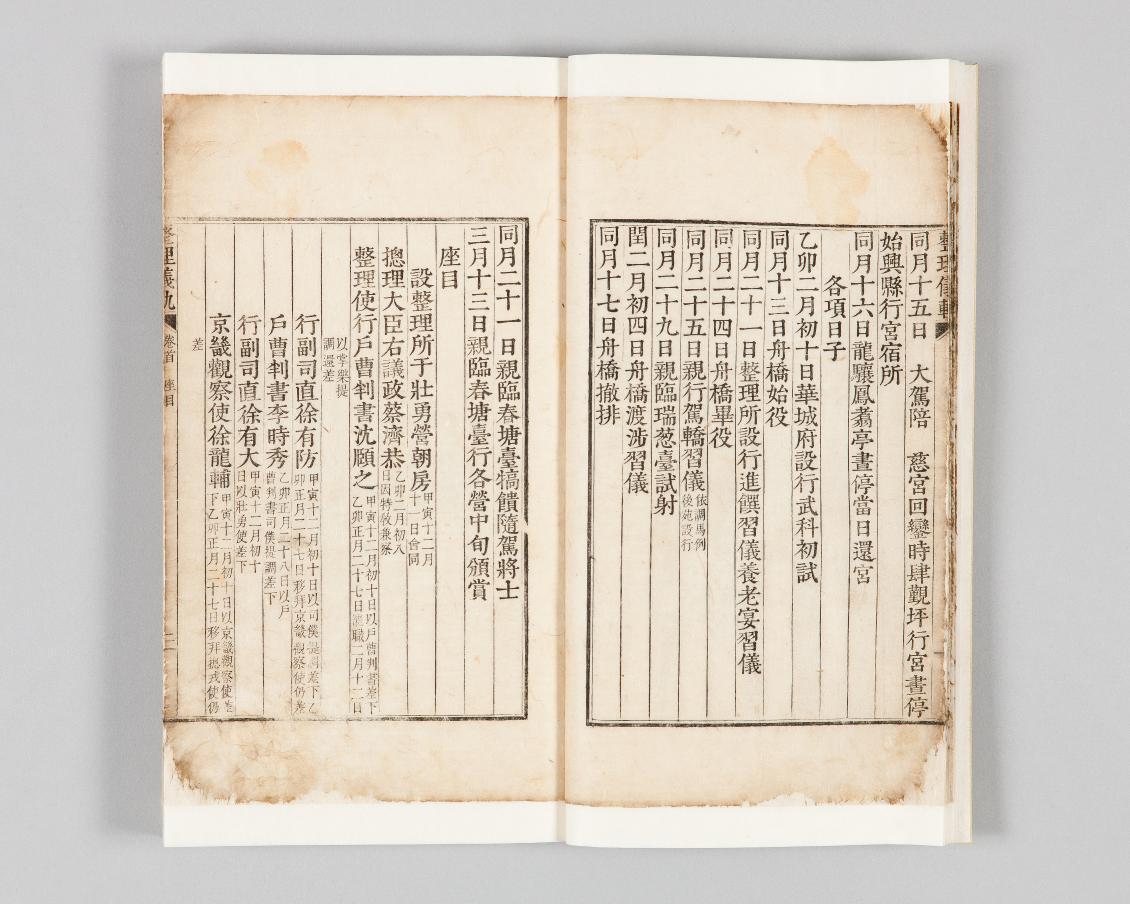 同月十五日　大駕陪　慈宮回鑾時肆覲坪行宮晝停
始興縣行宮宿所
同月十六日龍驤鳳翥亭晝停當日還宮
各項日子
乙卯二月初十日華城府設行武科初試
同月十三日舟橋始役
同月二十一日整理所設行進饌習儀養老宴習儀
同月二十四日舟橋畢役
同月二十五日親行駕轎習儀依調馬例後苑設行
同月二十九日親臨瑞葱臺試射
閏二月初四日舟橋渡涉習儀
同月十七日舟橋撤排
同月二十一日親臨春塘臺犒饋隨駕將士
三月十三日親臨春塘臺行各營中旬頒賞
座目
設整理所于壯勇營朝房甲寅十二月十一日會同
摠理大臣右議政蔡濟恭乙卯二月初八日因特敎兼察
整理使行戶曹判書沈頤之甲寅十二月初十日以戶曹判書差下乙卯正月二十七日遞職二月十二日
以掌樂提調還差
行副司直徐有防甲寅十二月初十日以司僕提調差下乙卯正月二十七日移拜京畿觀察使仍差
戶曹判書李時秀乙卯正月二十八日以戶曹判書司僕提調差下
行副司直徐有大甲寅十二月初十日以壯勇使差下
京畿觀察使徐龍輔甲寅十二月初十日以京畿觀察使差下乙卯正月二十七日移拜摠戎使仍
差
整理儀軌　卷首　座目　二